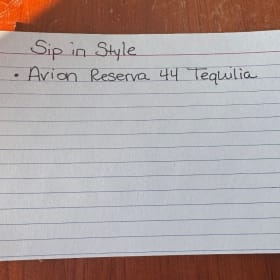 Sip in Style
• Avion Reserva 44 Tequilia